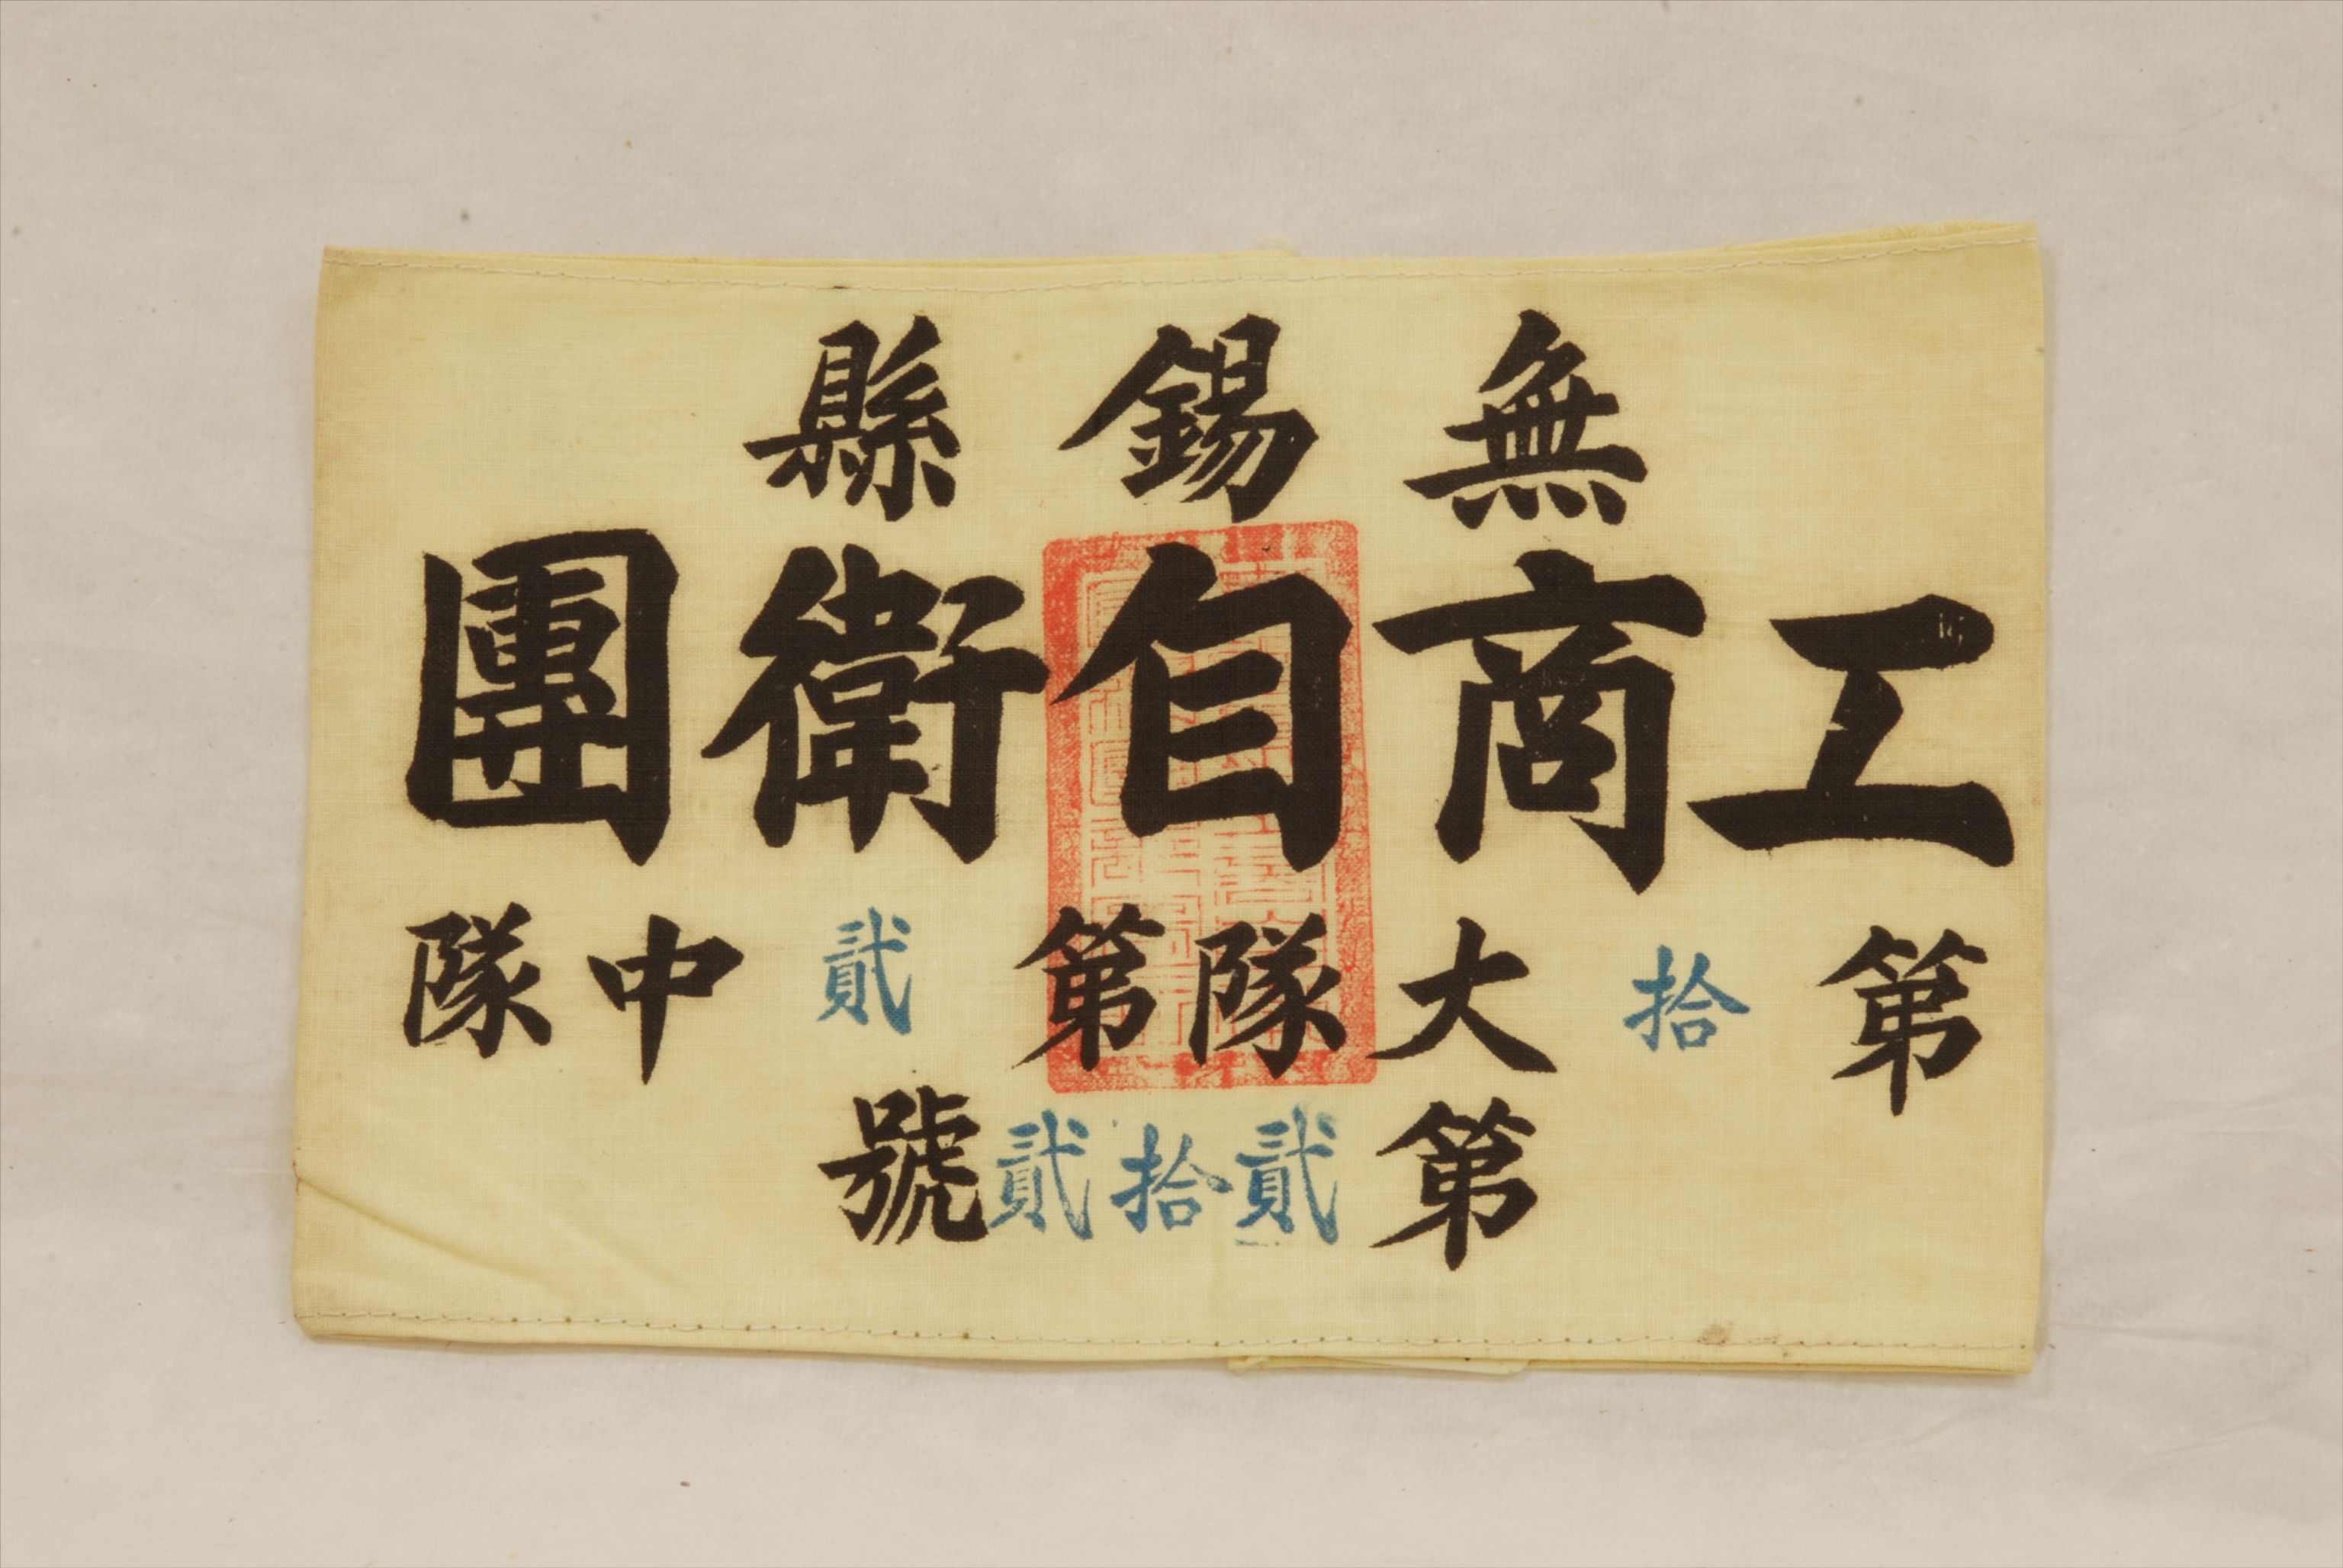 無錫縣
工商自衛團
第拾大隊第貳中隊
第貳拾貳號